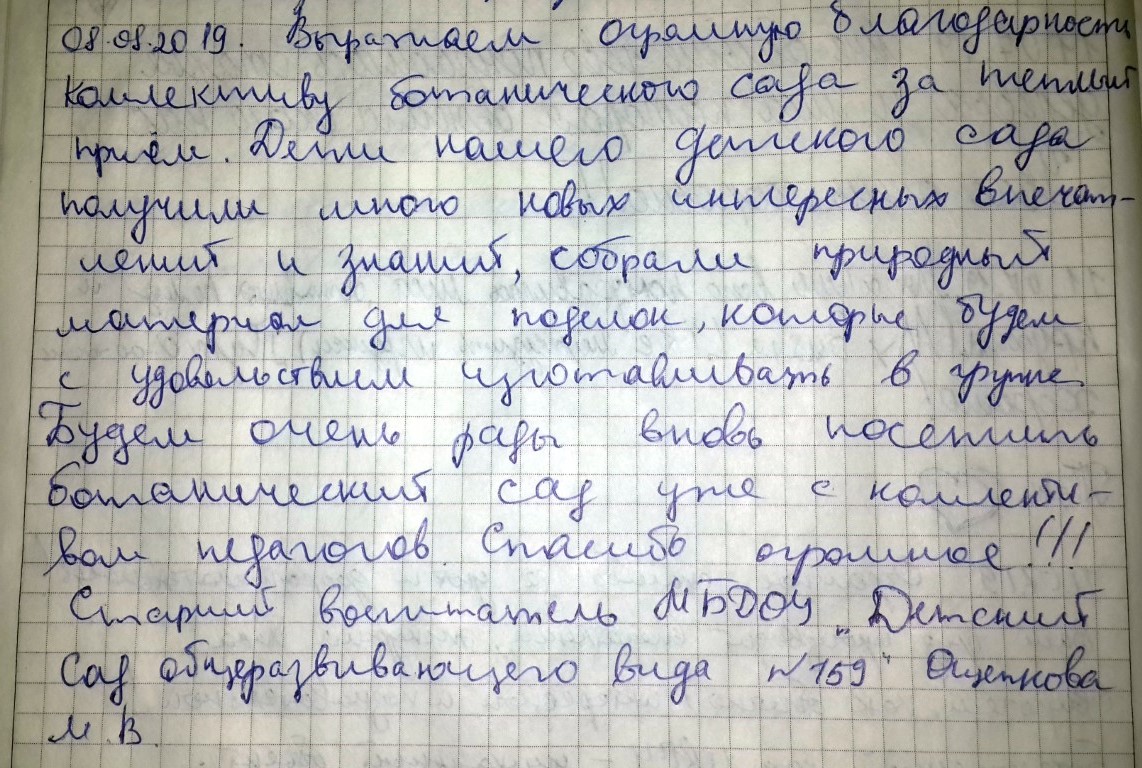 08.08.2019. Выражаем огромную благодарность
коллективу ботанического сада за теплый
приём. Дети нашего детского сада
получили много новых интересных впечат-
лений и знаний, собрали природный
материал для поделок, которые будем
с удовольствием изготавливать в группе.
Будем очень рады вновь посетить
ботанический сад уже с коллекти-
вом педагогов. Спасибо огромное!!!
Старший воспитатель МБДОУ „Детский
сад общеразвивающего вида №159" Ощепкова
М.В.